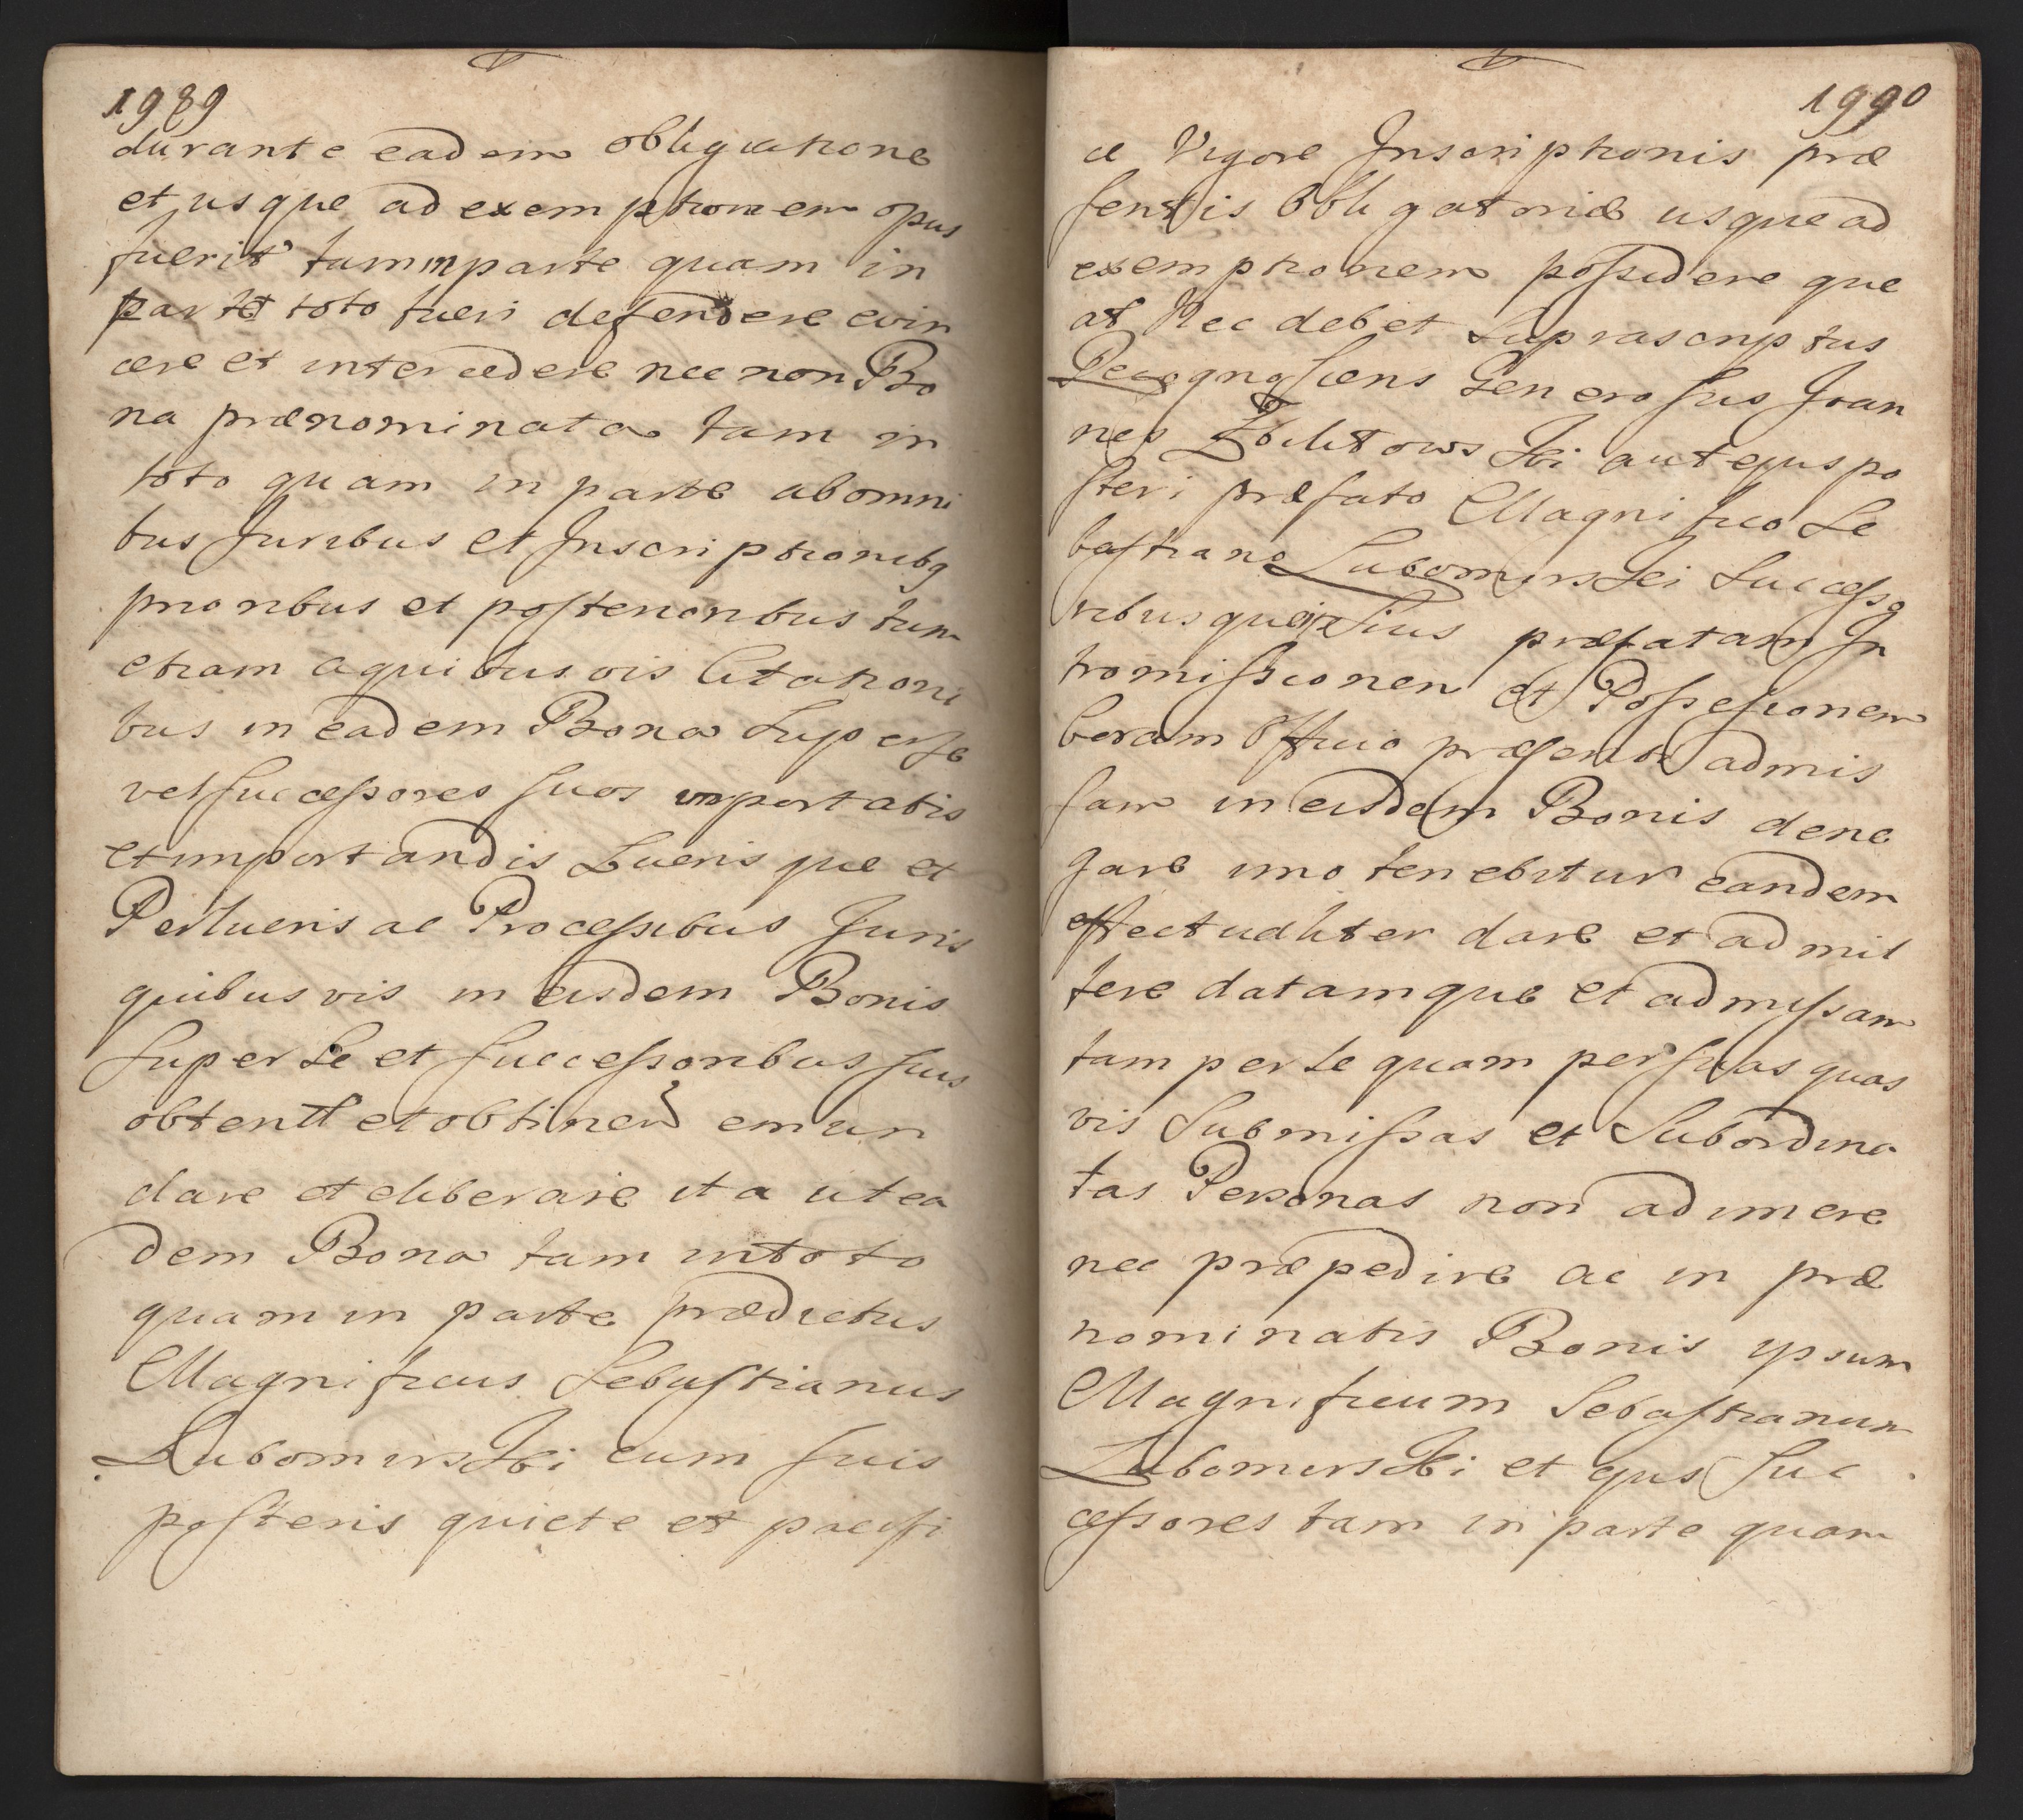 1989
durante eadem obligatione
et usque ad exemptionem opus
fuerit tam in parte quam in
toto tueri defendere evin
cere et intercedere nec non Bo
na prænominata tam in
toto quam in parte ab omni
bus Juribus et Inscriptionibq
prioribus et posterioribus tum
etiam a quibusvis Citationi
bus in eadem Bona Super se
vel successores suos importatis
et importandis Lucris que et
Perlucris ac Processibus Juris
quibusvis in eisdem Bonis
super se et successoribus suis
obtent et obtinend emun
dare et eliberare ita ut ea
dem Bona tam in toto
quam in parte prædictus
Magnificus Sebastianus
Lubomirski cum suis
posteris quiete et pacifi
1990
ce Vigore Inscriptionis præ
sentis Obligatoriæ usque ad
exemptionem possidere que
at Nec debet Suprascriptus
Recognoscens Generosus Joan
nes Zbilitowski aut ejus po
steri præfato Magnifico Se
bastiano Lubomirski Successo
ribus que ejus præfatam In
tromissionem et Possessionem
beram Officio præsenti admis
sam in eisdem Bonis dene
gare imo tenebitur eandem
effectualiter dare et admit
tere datamque et admissam
tam per se quam per suas quas
vis Submissas et Subordina
tas Personas non adimere
nec præpedire ac in præ
nominatis Bonis ipsum
Magnificum Sebastianum
Lubomirski et ejus Suc
cessores tam in parte quam